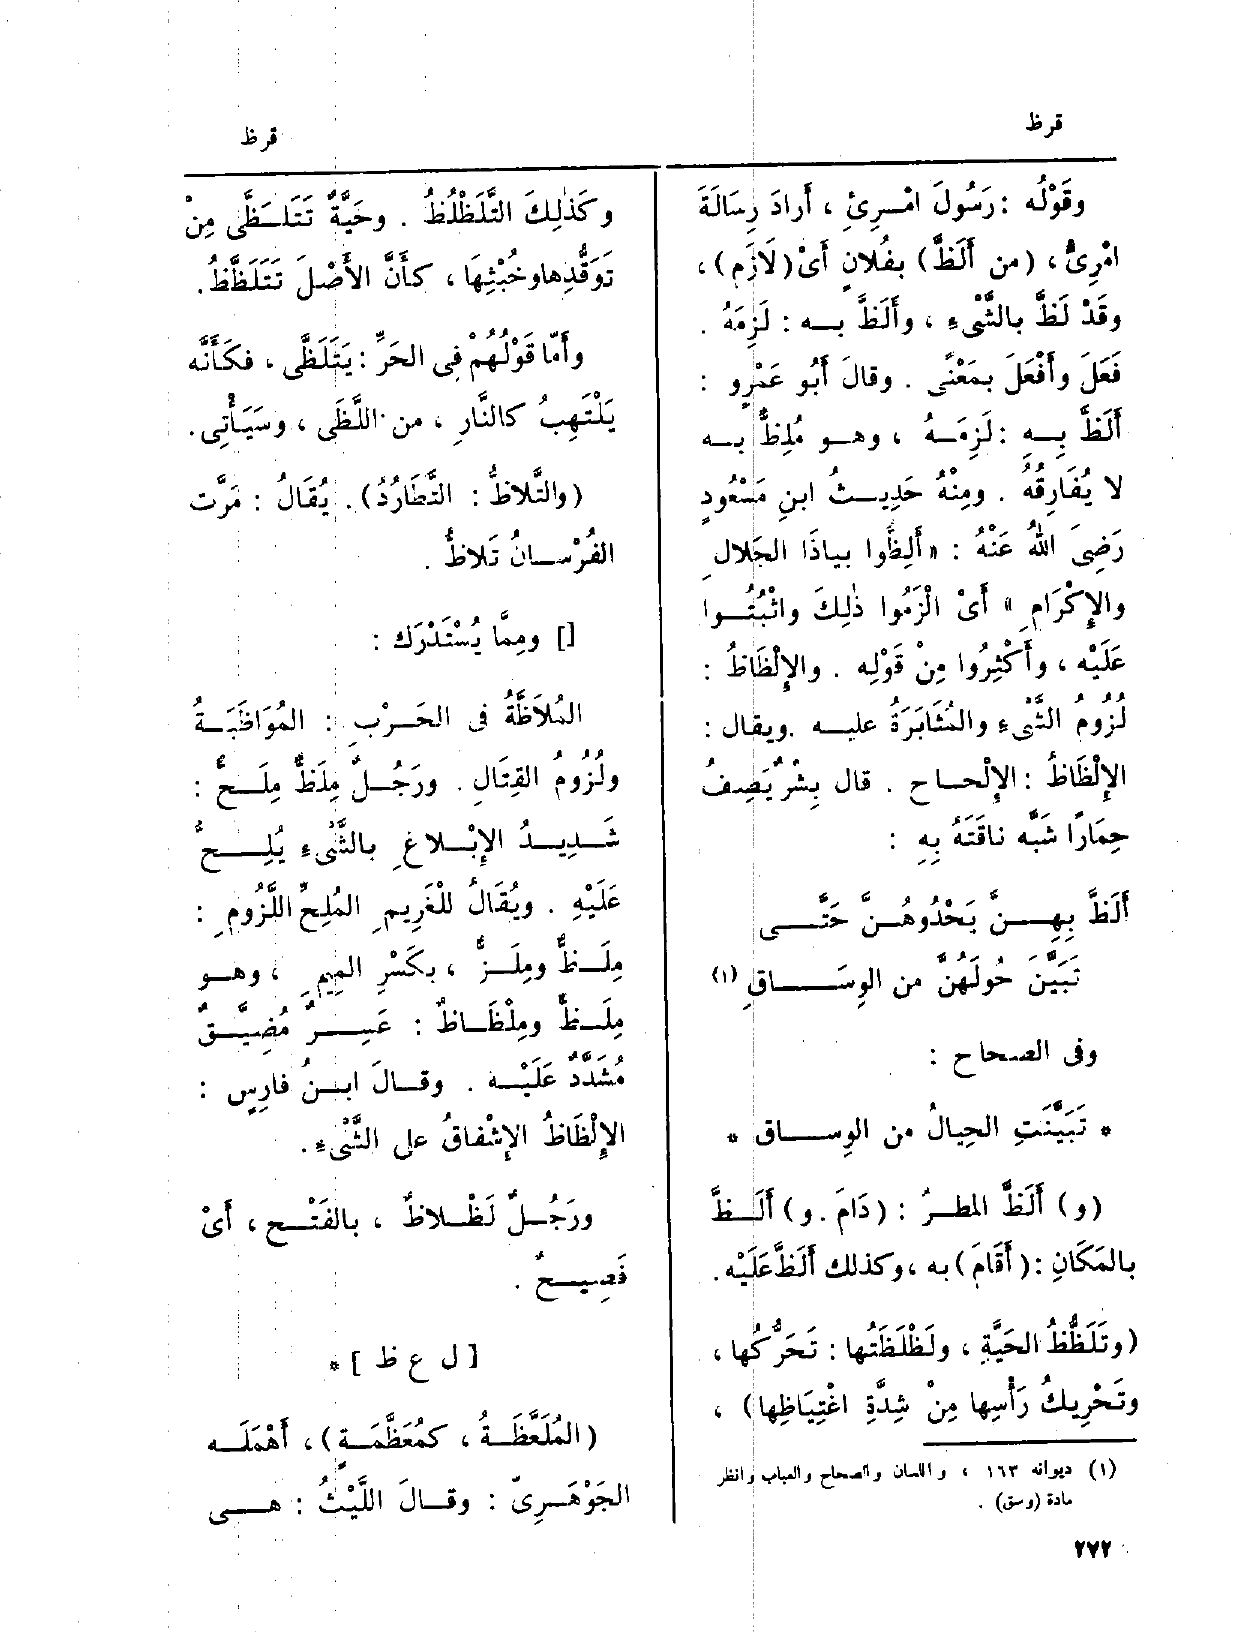 قرظ
قرظ
وقَوْلُه : رَسُولَ امْـرِئٍ ، أَرادَ رِسَالَةَ
امْرِئٍ ، (من أَلَظَّ) بفُلانٍ أَىْ (لَازَمِ) ،
وقَدْ لَظَّ بالشَّىْءِ ، وأَلَظَّ بــه : لَزِمَهُ .
فَعَلَ وأَفْعَلَ بمَعْنًى . وقالَ أَبُو عَمْرٍو :
أَلَظَّ بِــهِ : لَزِمَــهُ ، وهــو مُلِظٌّ بــه
لا يُفَارِقُهُ . ومِنْهُ حَدِيــثُ ابنِ مَسْعُودٍ
رَضِىَ اللهُ عَنْهُ : « أَلِظُّوا بياذَا الجَلالِ
والإِكْرَامِ » أَىْ الْزَمُوا ذٰلِكَ واثْبُتُــوا
عَلَيْه ، وأَكْثِرُوا مِنْ قَوْلِه . والإِلْظَاظُ :
لُزُومُ الشَّىْءِ والمُثَابَرَةُ عليــه . ويقال :
الإِلْظَاظُ : الإِلْحــاح . قال بِشْرٌ يَصِفُ
حِمَارًا شَبَّه ناقَتَهُ بِهِ :
أَلَظَّ بِهِــنَّ يَحْدُوهُــنَّ حَتَّــى
تَبَيَّنَ حُولُهُنَّ من الوِسَــاقِ (١)
وفى الصحاح :
* تَبَيَّنَتِ الحِيالُ من الوِســاق *
(و) أَلَظَّ المطــرُ : (دَامَ . و) أَلَــظَّ
بالمَكَانِ : (أَقَامَ) به ، وكذلك أَلَظَّ عَلَيْه .
(وتَلَظُّظُ الحَيَّةِ ، ولَظْلَظَتُها : تَحَرُّكُها ،
وتَحْرِيكُ رَأْسِها مِنْ شِدَّةِ اغْتِيَاظِها) ،
(١) ديوانه ١٦٣ ، واللسان والصحاح والعباب وانظر
مادة (وسق) .
وكَذٰلِكَ التَّلَظْلُظُ . وحَيَّةٌ تَتَلَــظَّى مِنْ
تَوَقُّدِها وخُبْثِهَا ، كأَنَّ الأَصْلَ تَتَلَظَّظُ .
وأَمّا قَوْلُهُمْ فِى الحَرِّ : يَتَلَظَّى ، فكَأَنَّه
يَلْتَهِبُ كالنَّارِ ، من اللَّظَى ، وسَيَأْتِى .
(والتَّلاظُّ : التَّطَارُدُ) . يُقَالُ : مَرَّت
الفُرْســانُ تَلاظُّ .
[] ومِمَّا يُسْتَدْرَك :
المُلاَظَّةُ فى الحَــرْبِ : المُوَاظَبَــةُ
ولُزُومُ القِتَالِ . ورَجُــلٌ مِلَظٌّ مِلَــحٌّ :
شَــدِيــدُ الإِبْــلاغِ بالشَّىْءِ يُلِــحُّ
عَلَيْهِ . ويُقَالُ للْغَرِيمِ المُلِحِّ اللَّزُومِ :
مِلَــظٌّ ومِلَــزٌّ ، بكَسْرِ المِيمِ ، وهــو
مِلَــظٌّ ومِلْظَــاظٌ : عَسِــرٌ مُضَيَّــقٌ
مُشَدَّدٌ عَلَيْــه . وقــالَ ابــنُ فارِسٍ :
الإِلْظَاظُ الإِشْفاقُ على الشَّىْءِ .
ورَجُــلٌ لَظْــلاظٌ ، بالفَتْــحِ ، أَىْ
فَصِيــحٌ .
[ ل ع ظ ] *
(المُلَعَّظَــةُ ، كمُعَظَّمَــةٍ) ، أَهْمَلَــه
الجَوْهَــرِىّ : وقــالَ اللَّيْثُ : هــى
٢٧٢